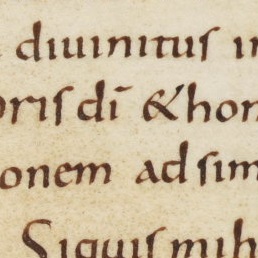 diuinitus in
oris dī & hon
onem ad sim
Siquis mih